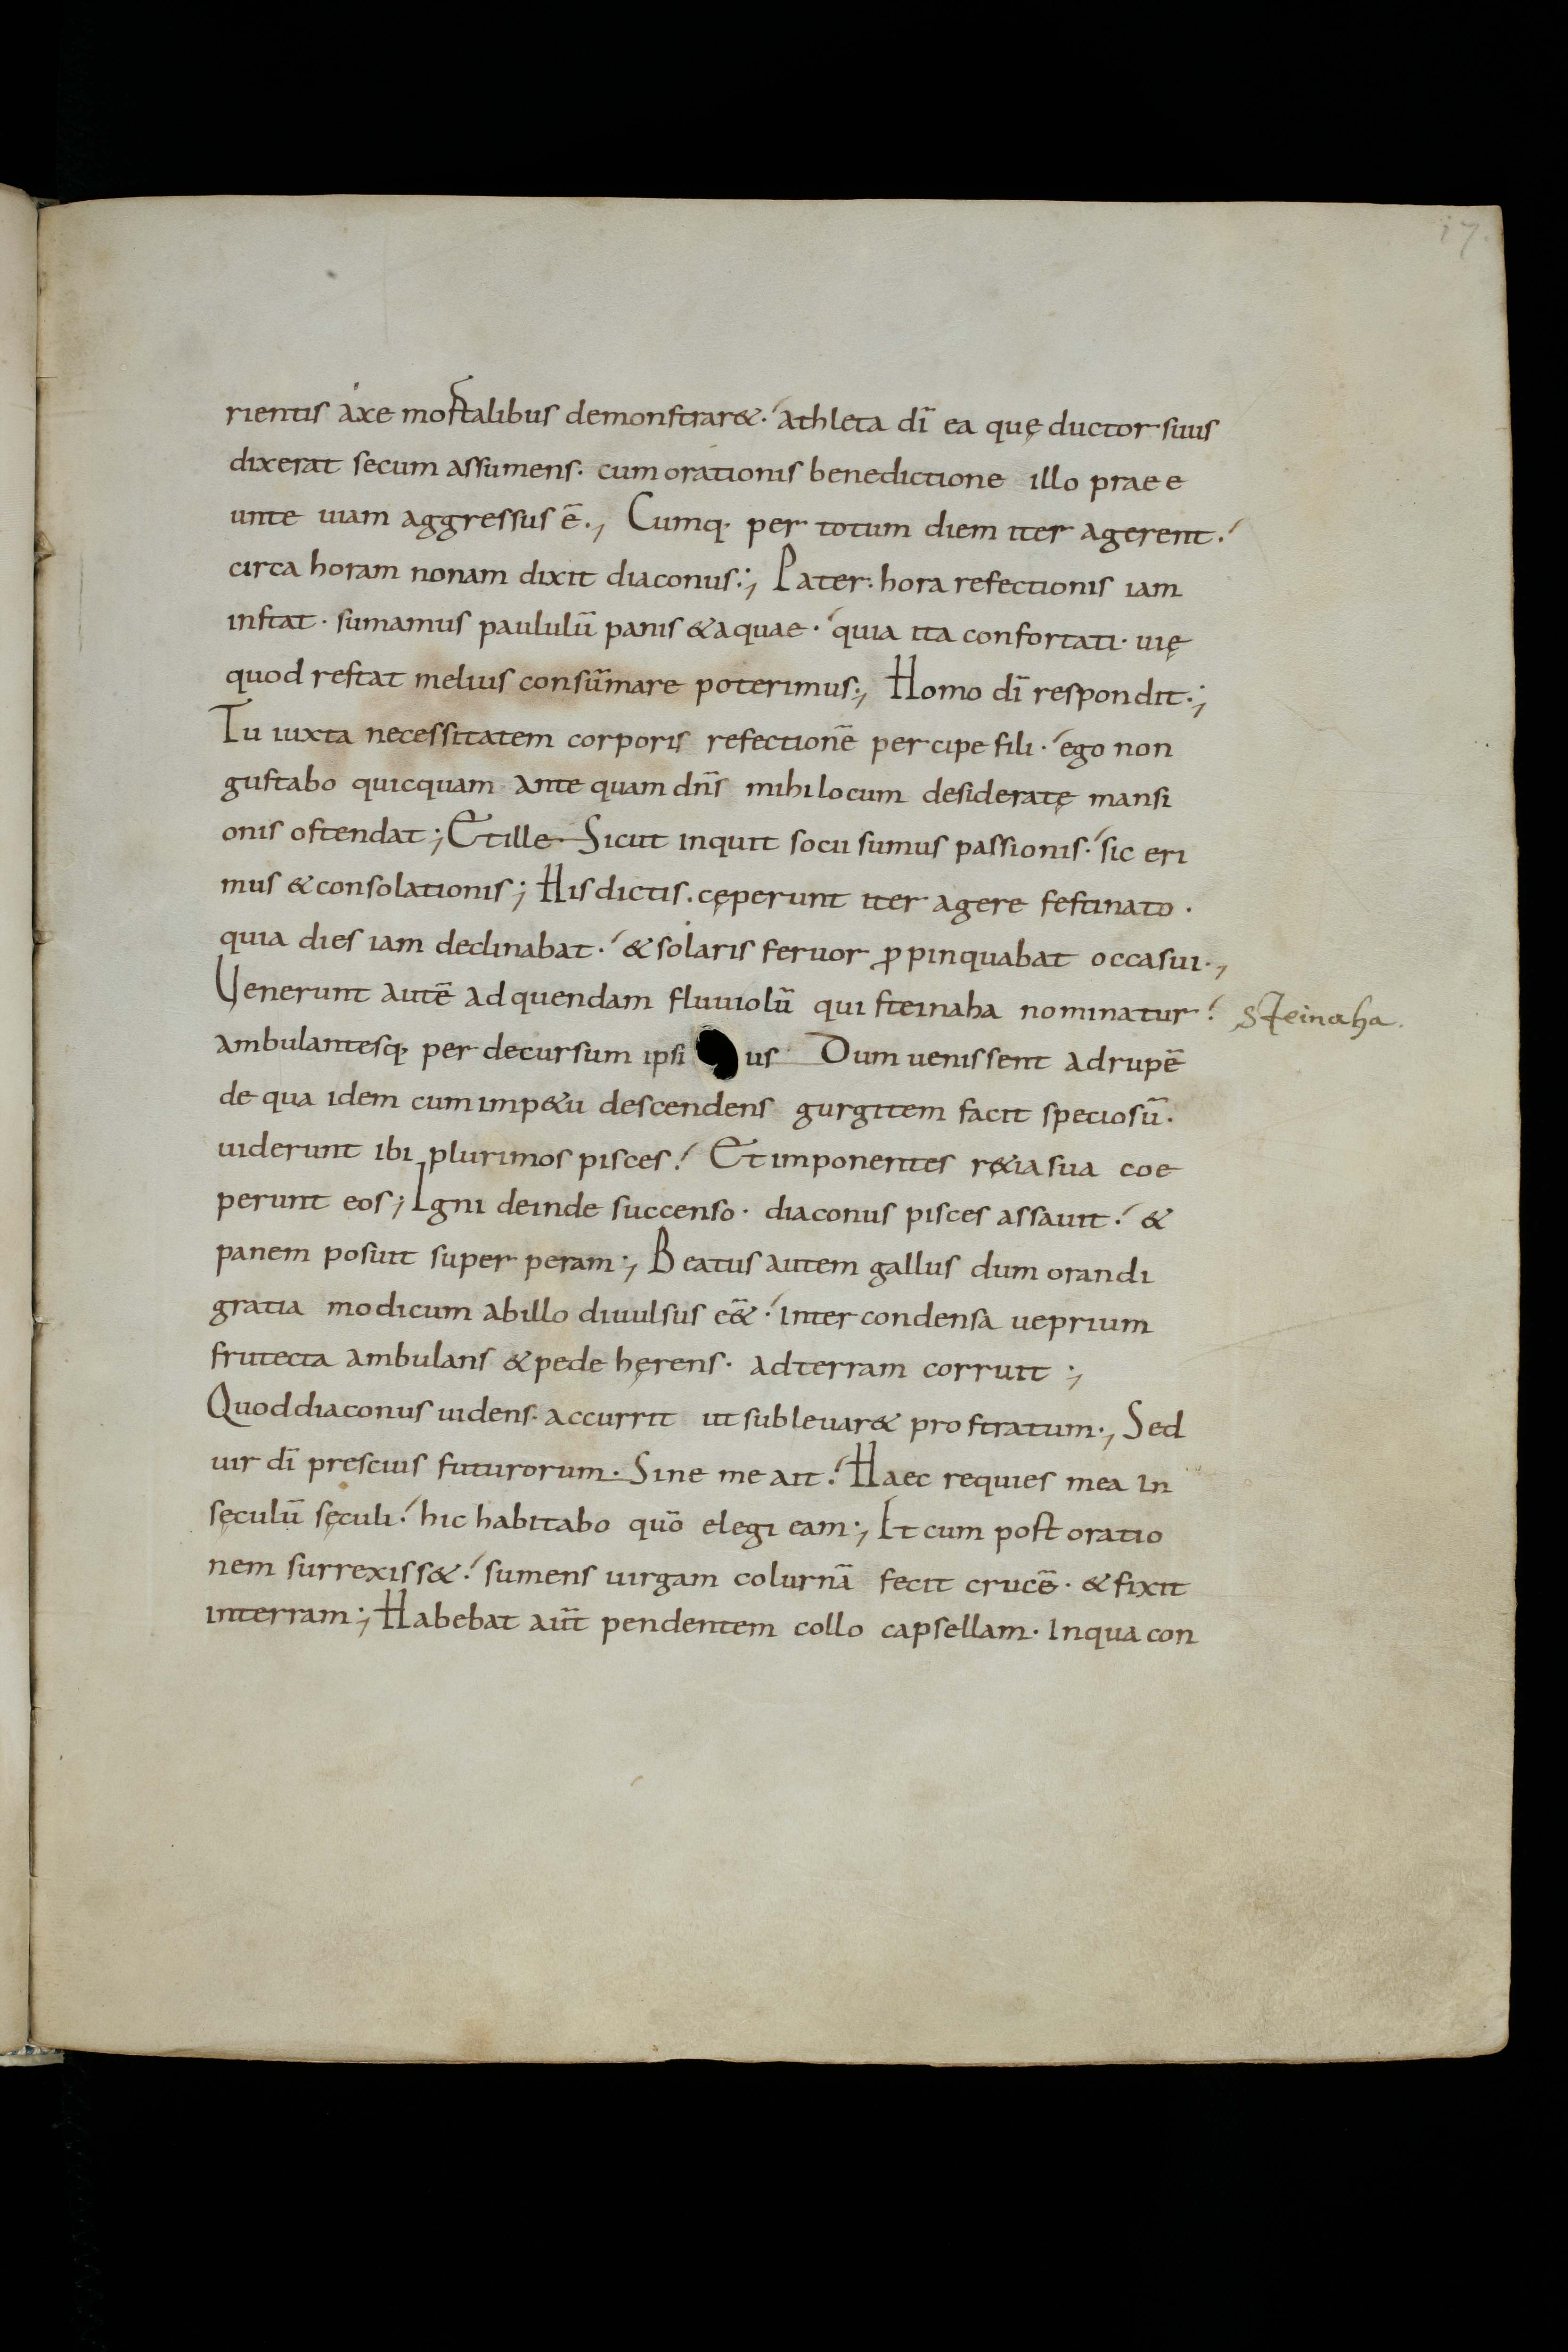 17.
rientis axe mortalibus demonstrar&· athleta dī ea quę ductor suus
dixerat secum assumens· cum orationis benedictione illo prae e
unte uiam aggressus ē·, Cumq· per totum diem iter agerent·
circa horam nonam dixit diaconus:, Pater· hora refectionis iam
instat· sumamus paululū panis & aquae· quia ita confortati· uię
quod restat melius consūmare poterimus:, Homo dī respondit·;
Tu iuxta necessitatem corporis refectionē percipe fili· ego non
gustabo quicquam ante quam dn̄s mihi locum desideratę mansi
onis ostendat; Et ille· Sicut inquit socii sumus passionis· sic eri
mus & consolationis; His dictis· cęperunt iter agere festinato·
quia dies iam declinabat· & solaris feruor ꝓpinquabat occasui·,
Uenerunt autē ad quendam fluuiolū qui steinaha nominatur·
steinaha.
ambulantesq· per decursum ipsi us Dum uenissent ad rupē
de qua idem cum imp&u descendens gurgitem facit speciosū·
uiderunt ibi plurimos pisces· Et imponentes r&ia sua coe
perunt eos; Igni deinde succenso· diaconus pisces assauit· &
panem posuit super peram·, Beatus autem gallus dum orandi
gratia modicum ab illo diuulsus ē&· inter condensa ueprium
frutecta ambulans & pede hęrens· ad terram corruit ;
Quod diaconus uidens· accurrit ut subleuar& prostratum·, Sed
uir dī prescius futurorum· Sine me ait· Haec requies mea in
sęculū sęculi· hic habitabo quō elegi eam·, Et cum post oratio
nem surrexiss&· sumens uirgam colurnā fecit crucē· & fixit
in terram·, Habebat aūt pendentem collo capsellam· In qua con